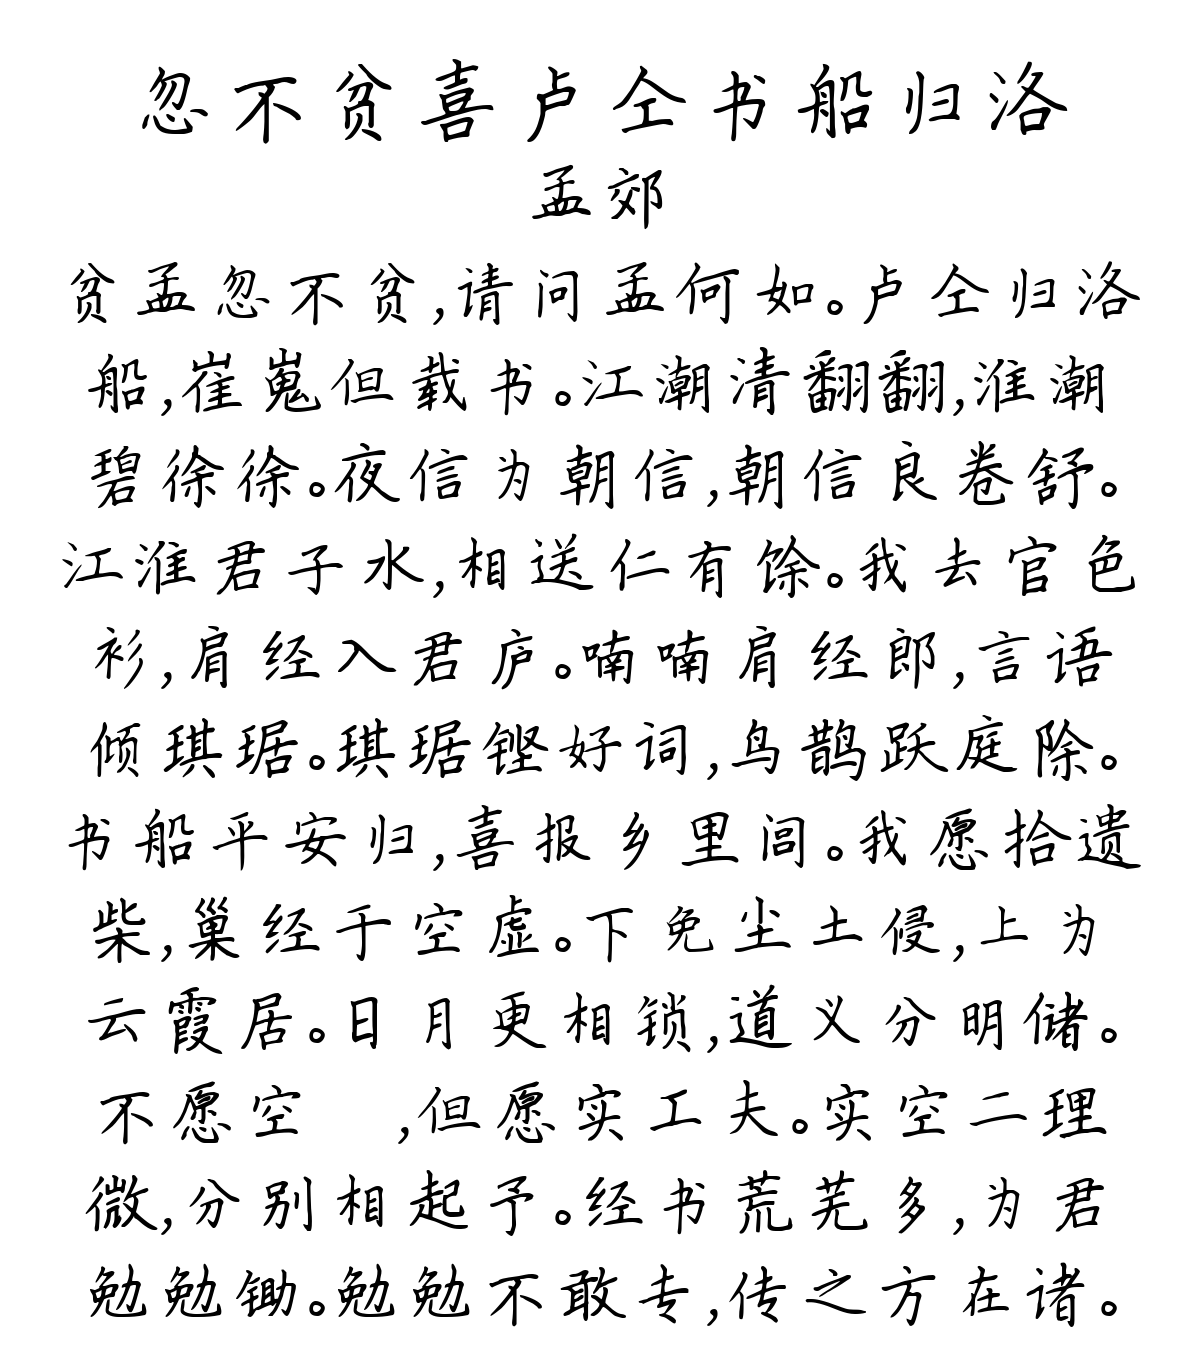 忽不贫喜卢仝书船归洛
孟郊
贫孟忽不贫,请问孟何如。卢仝归洛
船,崔嵬但载书。江潮清翻翻,淮潮
碧徐徐。夜信为朝信,朝信良卷舒。
江淮君子水,相送仁有馀。我去官色
衫,肩经入君庐。喃喃肩经郎,言语
倾琪琚。琪琚铿好词,鸟鹊跃庭除。
书船平安归,喜报乡里闾。我愿拾遗
柴,巢经于空虚。下免尘土侵,上为
云霞居。日月更相锁,道义分明储。
不愿空 ,但愿实工夫。实空二理
微,分别相起予。经书荒芜多,为君
勉勉锄。勉勉不敢专,传之方在诸。